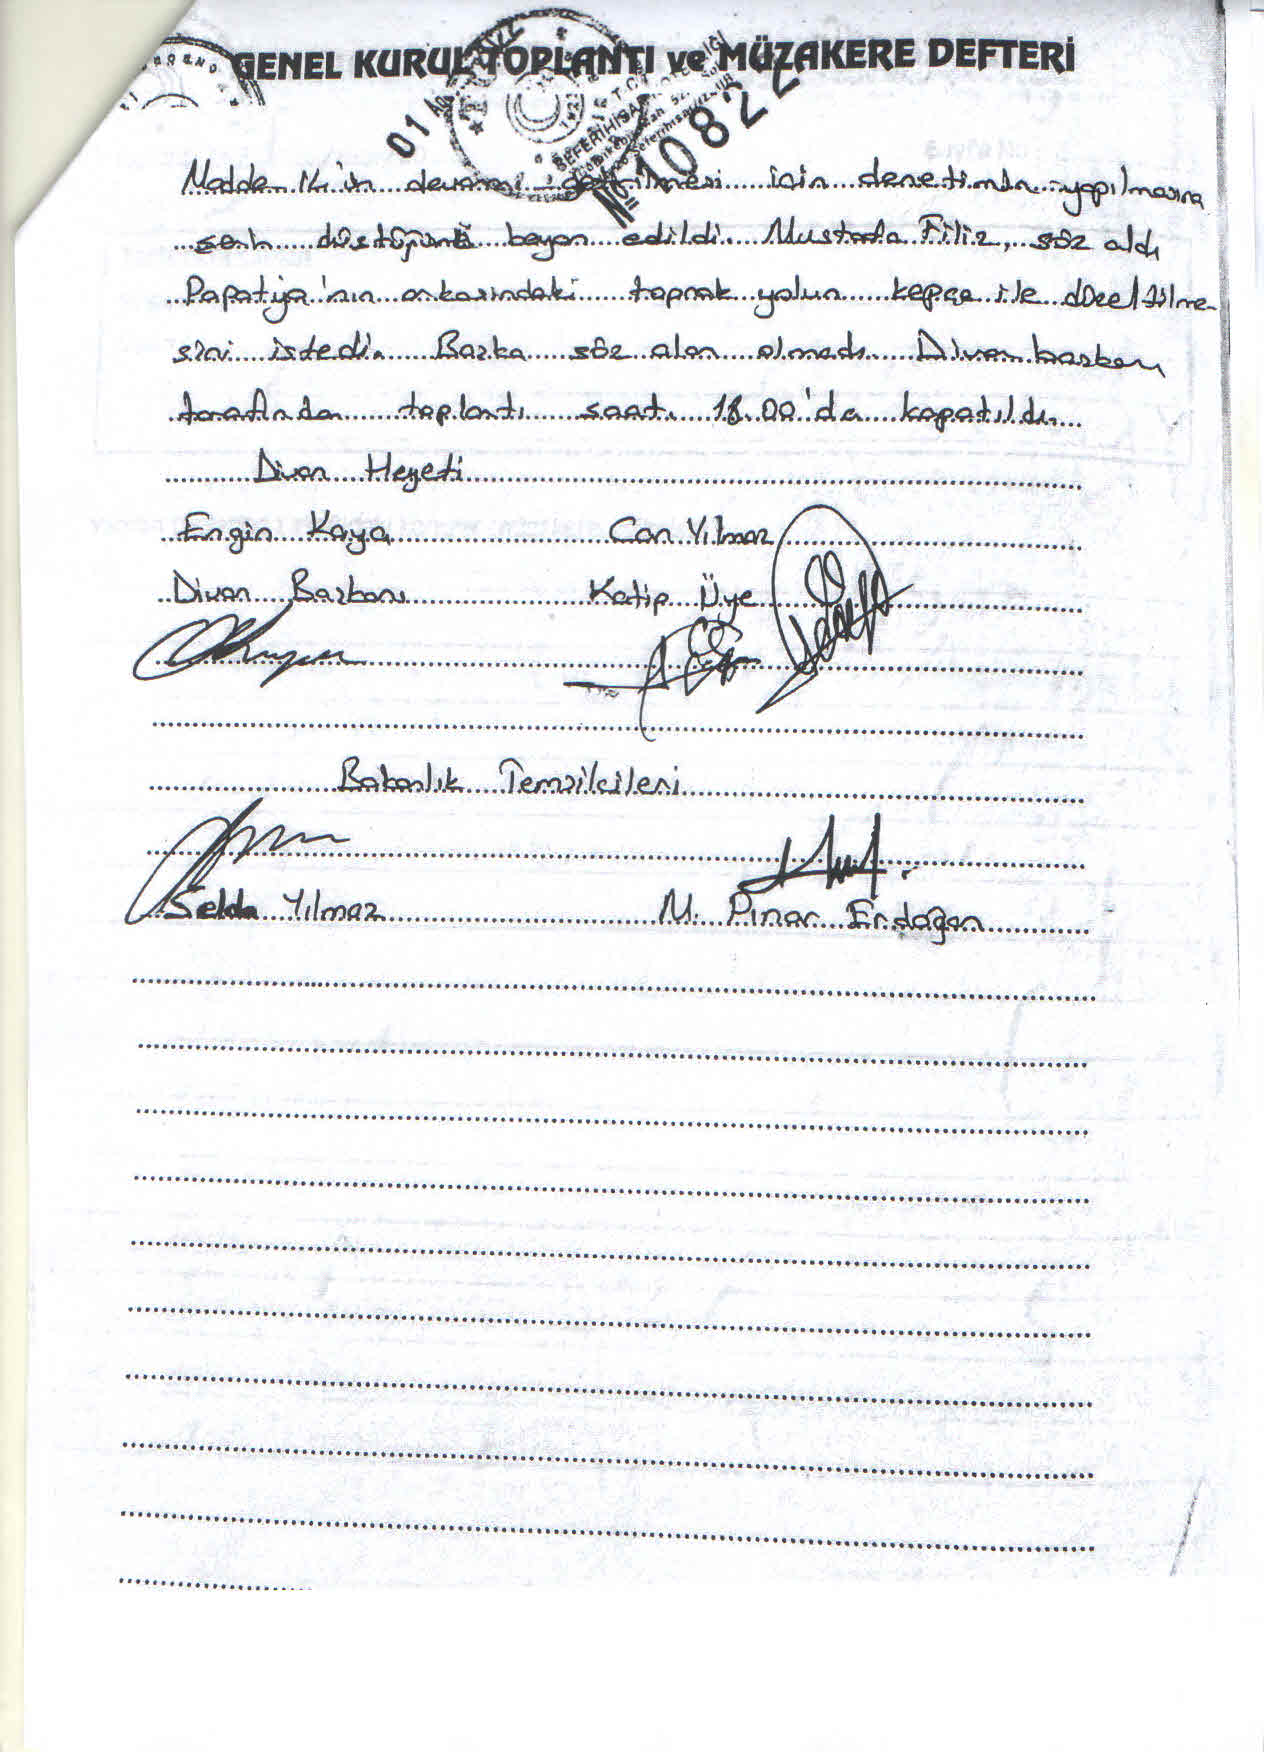 GENEL KURUL TOPLANTI ve MÜZAKERE DEFTERİ
01
T.C.
SEFERİHİSAR
No 10822
Madde 14'ün devamı için denetimin yapılmasına
düştüğünü beyan edildi. Mustafa Filiz, söz aldı
Papatya'nın arkasındaki toprak yolun kepçe ile düzeltilme-
sini istedi. Başka söz alan olmadı. Divan başkanı
tarafından toplantı saat. 18.00'da kapatıldı.
Divan Heyeti
Engin Kaya Can Yılmaz
Divan Başkanı Katip Üye
Bakanlık Temsilcileri
Selda Yılmaz M. Pınar Erdoğan